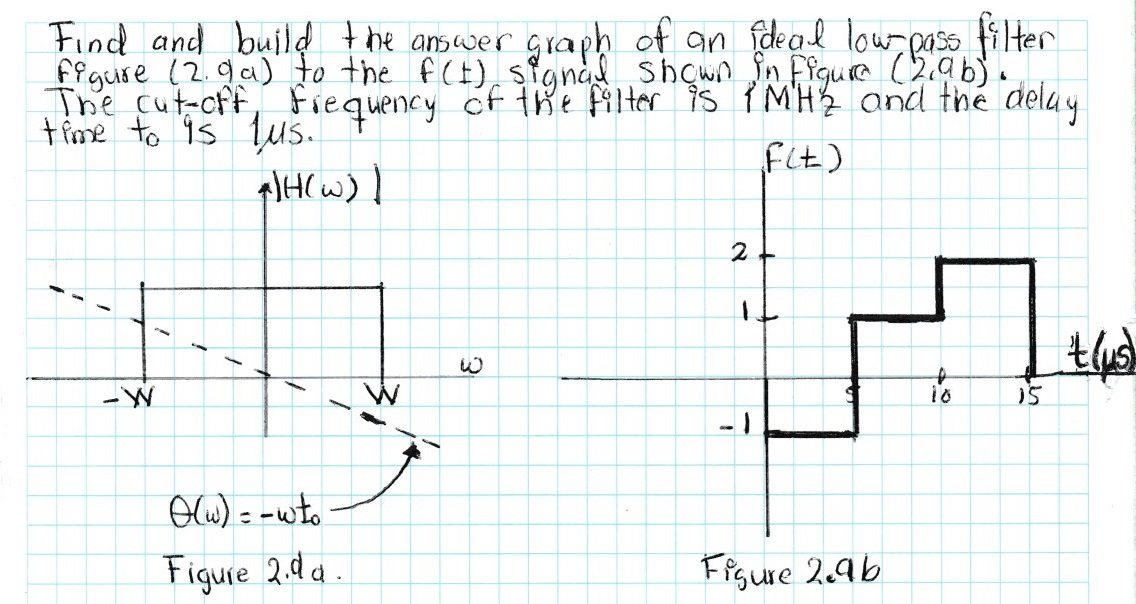 Find and build the answer graph of an ideal low-pass filter
figure (2.9a) to the f(t) signal shown in Figure (2.9b).
The cut-off frequency of the filter is 1 MHz and the delay
time to is 1μs.
|H(ω)|
ω
-W
W
θ(ω) = -ωt₀
Figure 2.9a.
F(t)
2
1
-1
5
10
15
t(μs)
Figure 2.9b